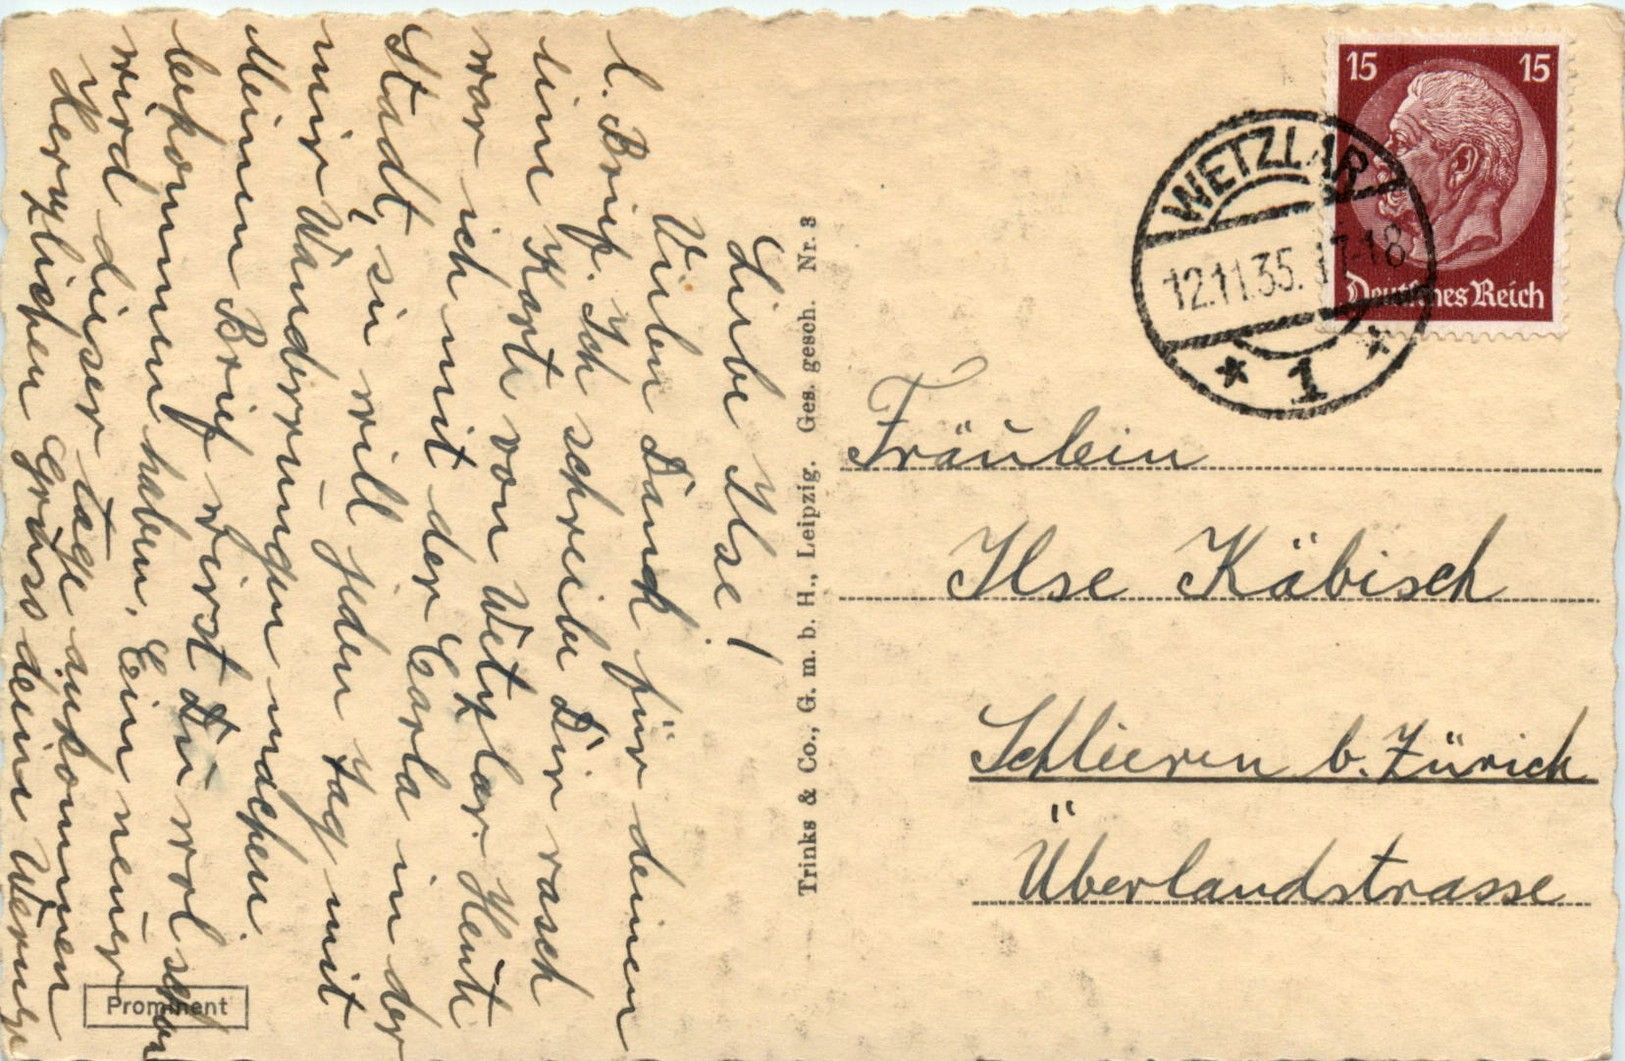 Liebe Ilse!
Vielen Dank für deinen
l. Brief. Ich schreibe Dir rasch
eine Karte von Wetzlar. Heute
war ich mit der Carla in der
Stadt, sie will jeden Tag mit
mir Wanderrungen machen.
Meinen Brief wirst Du wol schon
bekommen haben. Ein neuer
wird dieser tage ankommen
Herzlichen Gruss deine
Trinks & Co., G. m. b. H., Leipzig. Ges. gesch. Nr. 8
Prominent
15 15
Deutsches Reich
WETZLAR
12.11.35. 17-18
* 1 *
Fräulein
Ilse Käbisch
Schlieren b. Zürich
Überlandstrasse